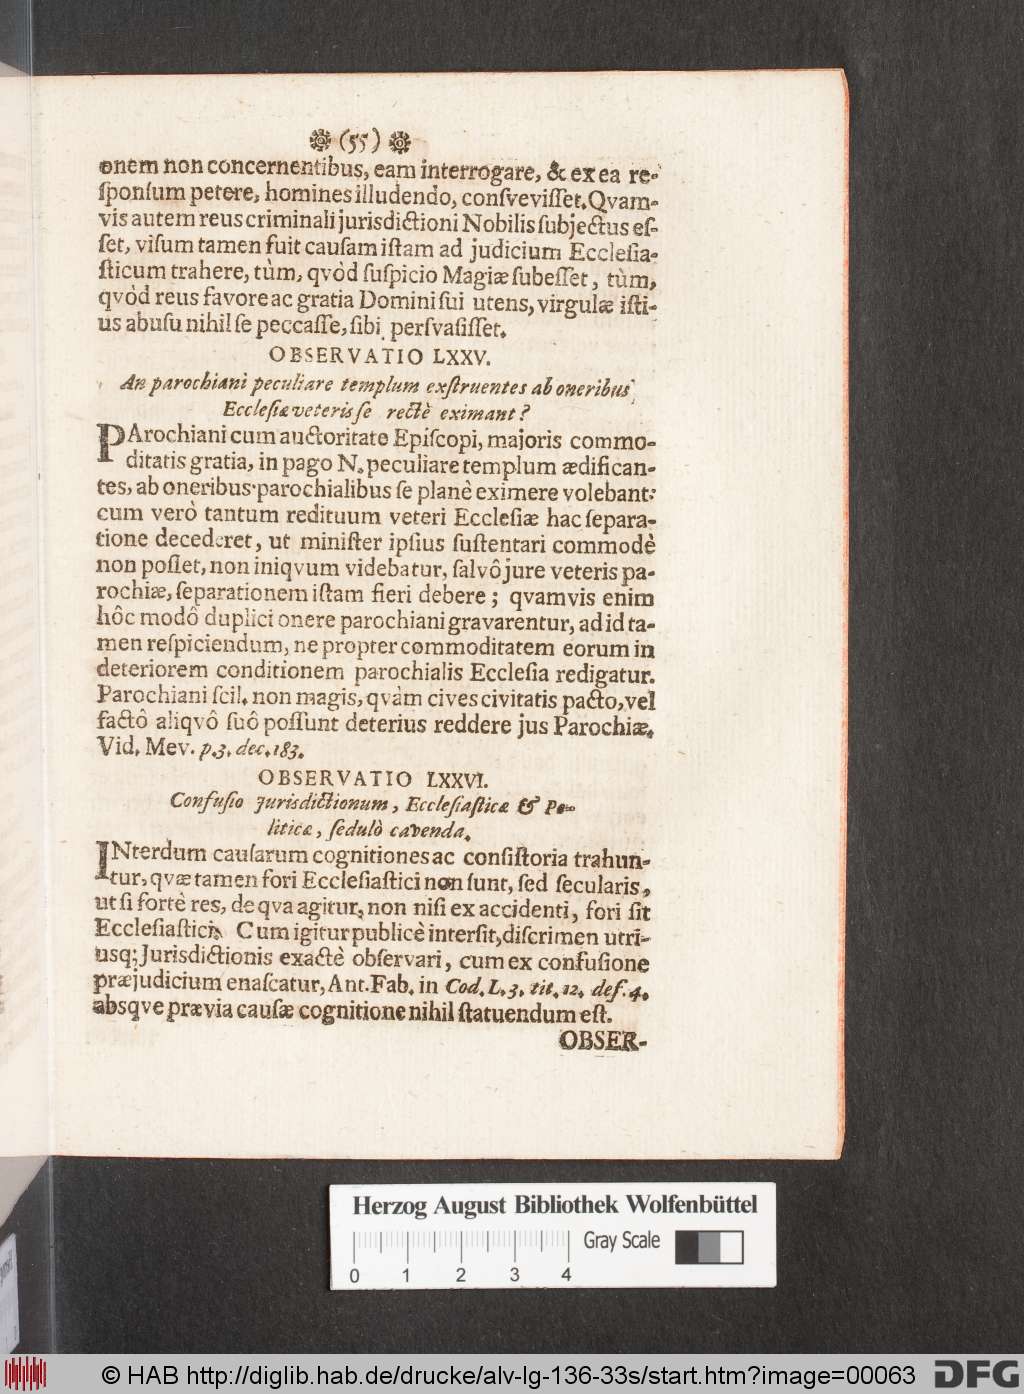 (55)
onem non concernentibus, eam interrogare, & ex ea re-
ſponſum petere, homines illudendo, conſveviſſet. Qvam-
vis autem reus criminali jurisdictioni Nobilis ſubjectus eſ-
ſet, viſum tamen fuit cauſam iſtam ad judicium Eccleſia-
ſticum trahere, tùm, qvòd ſuſpicio Magiæ ſubeſſet, tùm,
qvòd reus favore ac gratia Domini ſui utens, virgulæ iſti-
us abuſu nihil ſe peccaſſe, ſibi perſvaſiſſet.
OBSERVATIO LXXV.
An parochiani peculiare templum exſtruentes ab oneribus
Eccleſiæ veteris ſe rectè eximant?
PArochiani cum auctoritate Epiſcopi, majoris commo-
ditatis gratia, in pago N. peculiare templum ædifican-
tes, ab oneribus parochialibus ſe planè eximere volebant:
cum verò tantum redituum veteri Eccleſiæ hac ſepara-
tione decederet, ut miniſter ipſius ſuſtentari commodè
non poſſet, non iniqvum videbatur, ſalvô jure veteris pa-
rochiæ, ſeparationem iſtam fieri debere; qvamvis enim
hôc modô duplici onere parochiani gravarentur, ad id ta-
men reſpiciendum, ne propter commoditatem eorum in
deteriorem conditionem parochialis Eccleſia redigatur.
Parochiani ſcil. non magis, qvàm cives civitatis pacto, vel
factô aliqvô ſuô poſſunt deterius reddere jus Parochiæ.
Vid. Mev. p.3. dec. 183.
OBSERVATIO LXXVI.
Confuſio Jurisdictionum, Eccleſiaſticæ & Po-
liticæ, ſedulò cavenda.
INterdum cauſarum cognitiones ac conſiſtoria trahun-
tur, qvæ tamen fori Eccleſiaſtici non ſunt, ſed ſecularis,
ut ſi fortè res, de qva agitur, non niſi ex accidenti, fori ſit
Eccleſiaſtici. Cum igitur publicè interſit, diſcrimen utri-
usq; Jurisdictionis exactè obſervari, cum ex confuſione
præjudicium enaſcatur, Ant. Fab. in Cod. L. 3. tit. 12. def. 4.
absqve prævia cauſæ cognitione nihil ſtatuendum eſt.
OBSER-
Herzog August Bibliothek Wolfenbüttel
0 1 2 3 4 Gray Scale
© HAB http://diglib.hab.de/drucke/alv-lg-136-33s/start.htm?image=00063
DFG